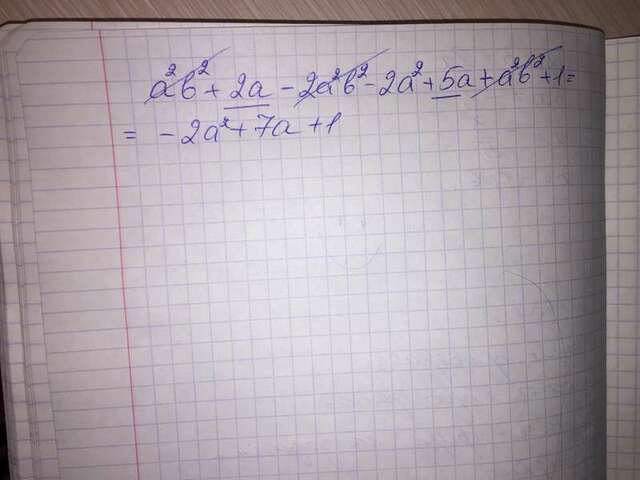 a²b² + 2a - 2a²b² - 2a² + 5a + a²b² + 1 =
= - 2a² + 7a + 1